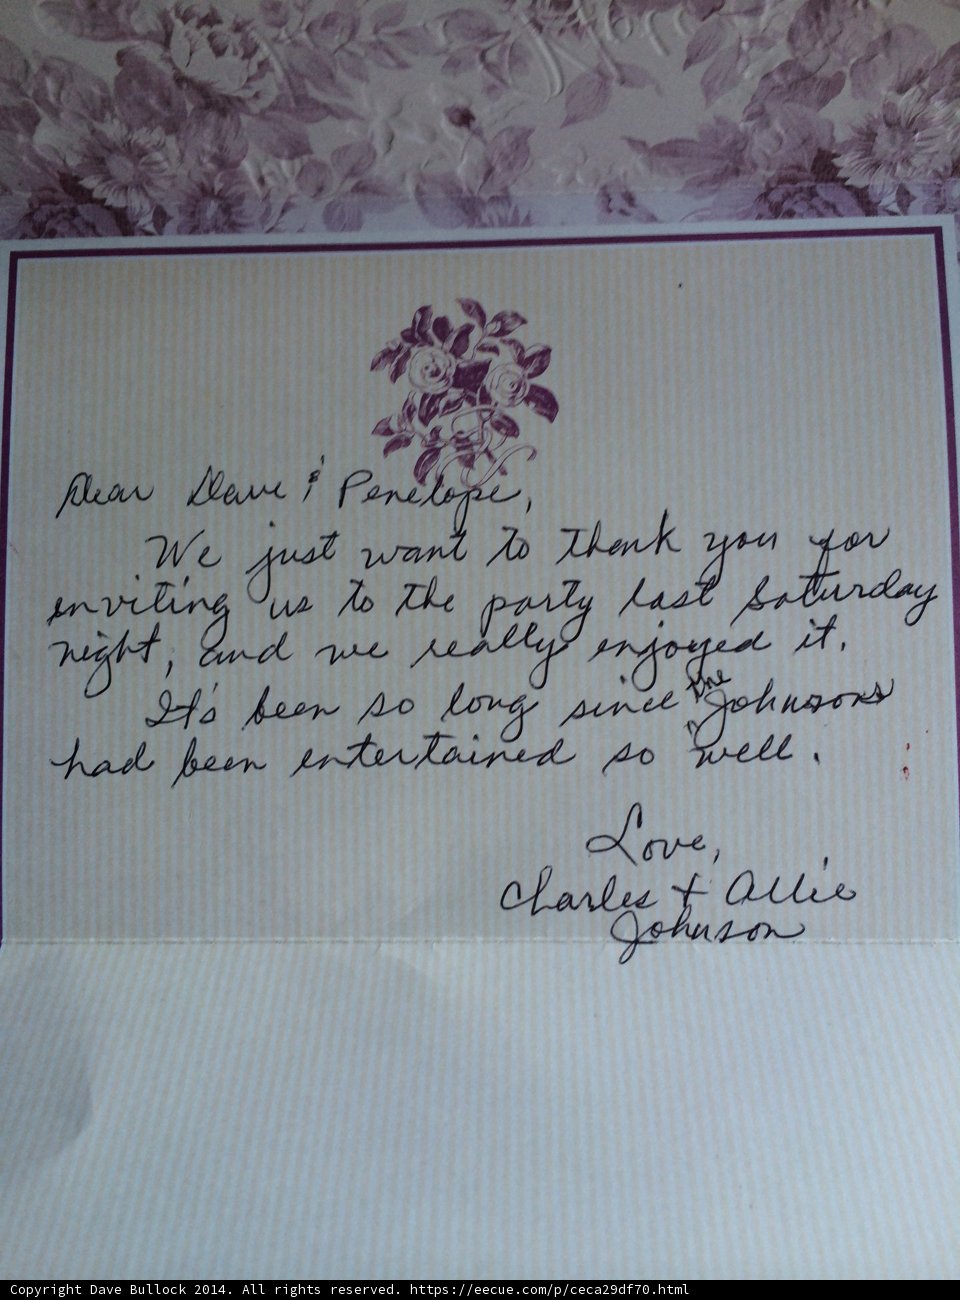 Dear Dave & Penelope,
We just want to thank you for
inviting us to the party last Saturday
night, and we really enjoyed it.
It's been so long since the Johnsons
had been entertained so well.
Love,
Charles + Allie
Johnson
Copyright Dave Bullock 2014. All rights reserved. https://eecue.com/p/ceca29df70.html